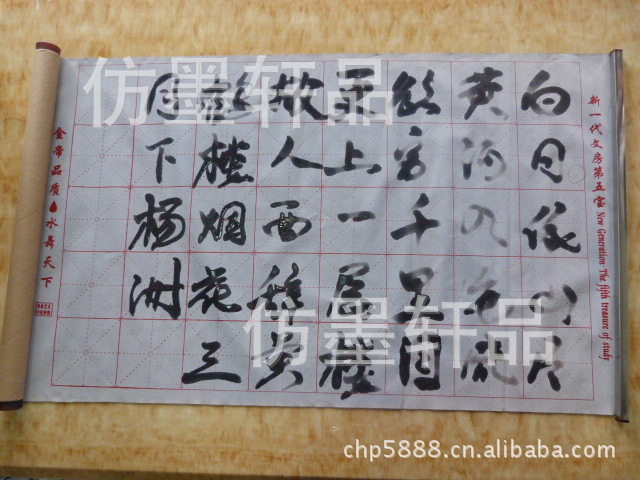 新一代文房第五宝 New Generation The fifth treasure of study
白日依山尽
黄河入海流
欲穷千里目
更上一层楼
故人西辞黄
鹤楼烟花三
月下杨洲
金帝品质 水舞天下
仿墨轩品
仿墨轩品
chp5888.cn.alibaba.com